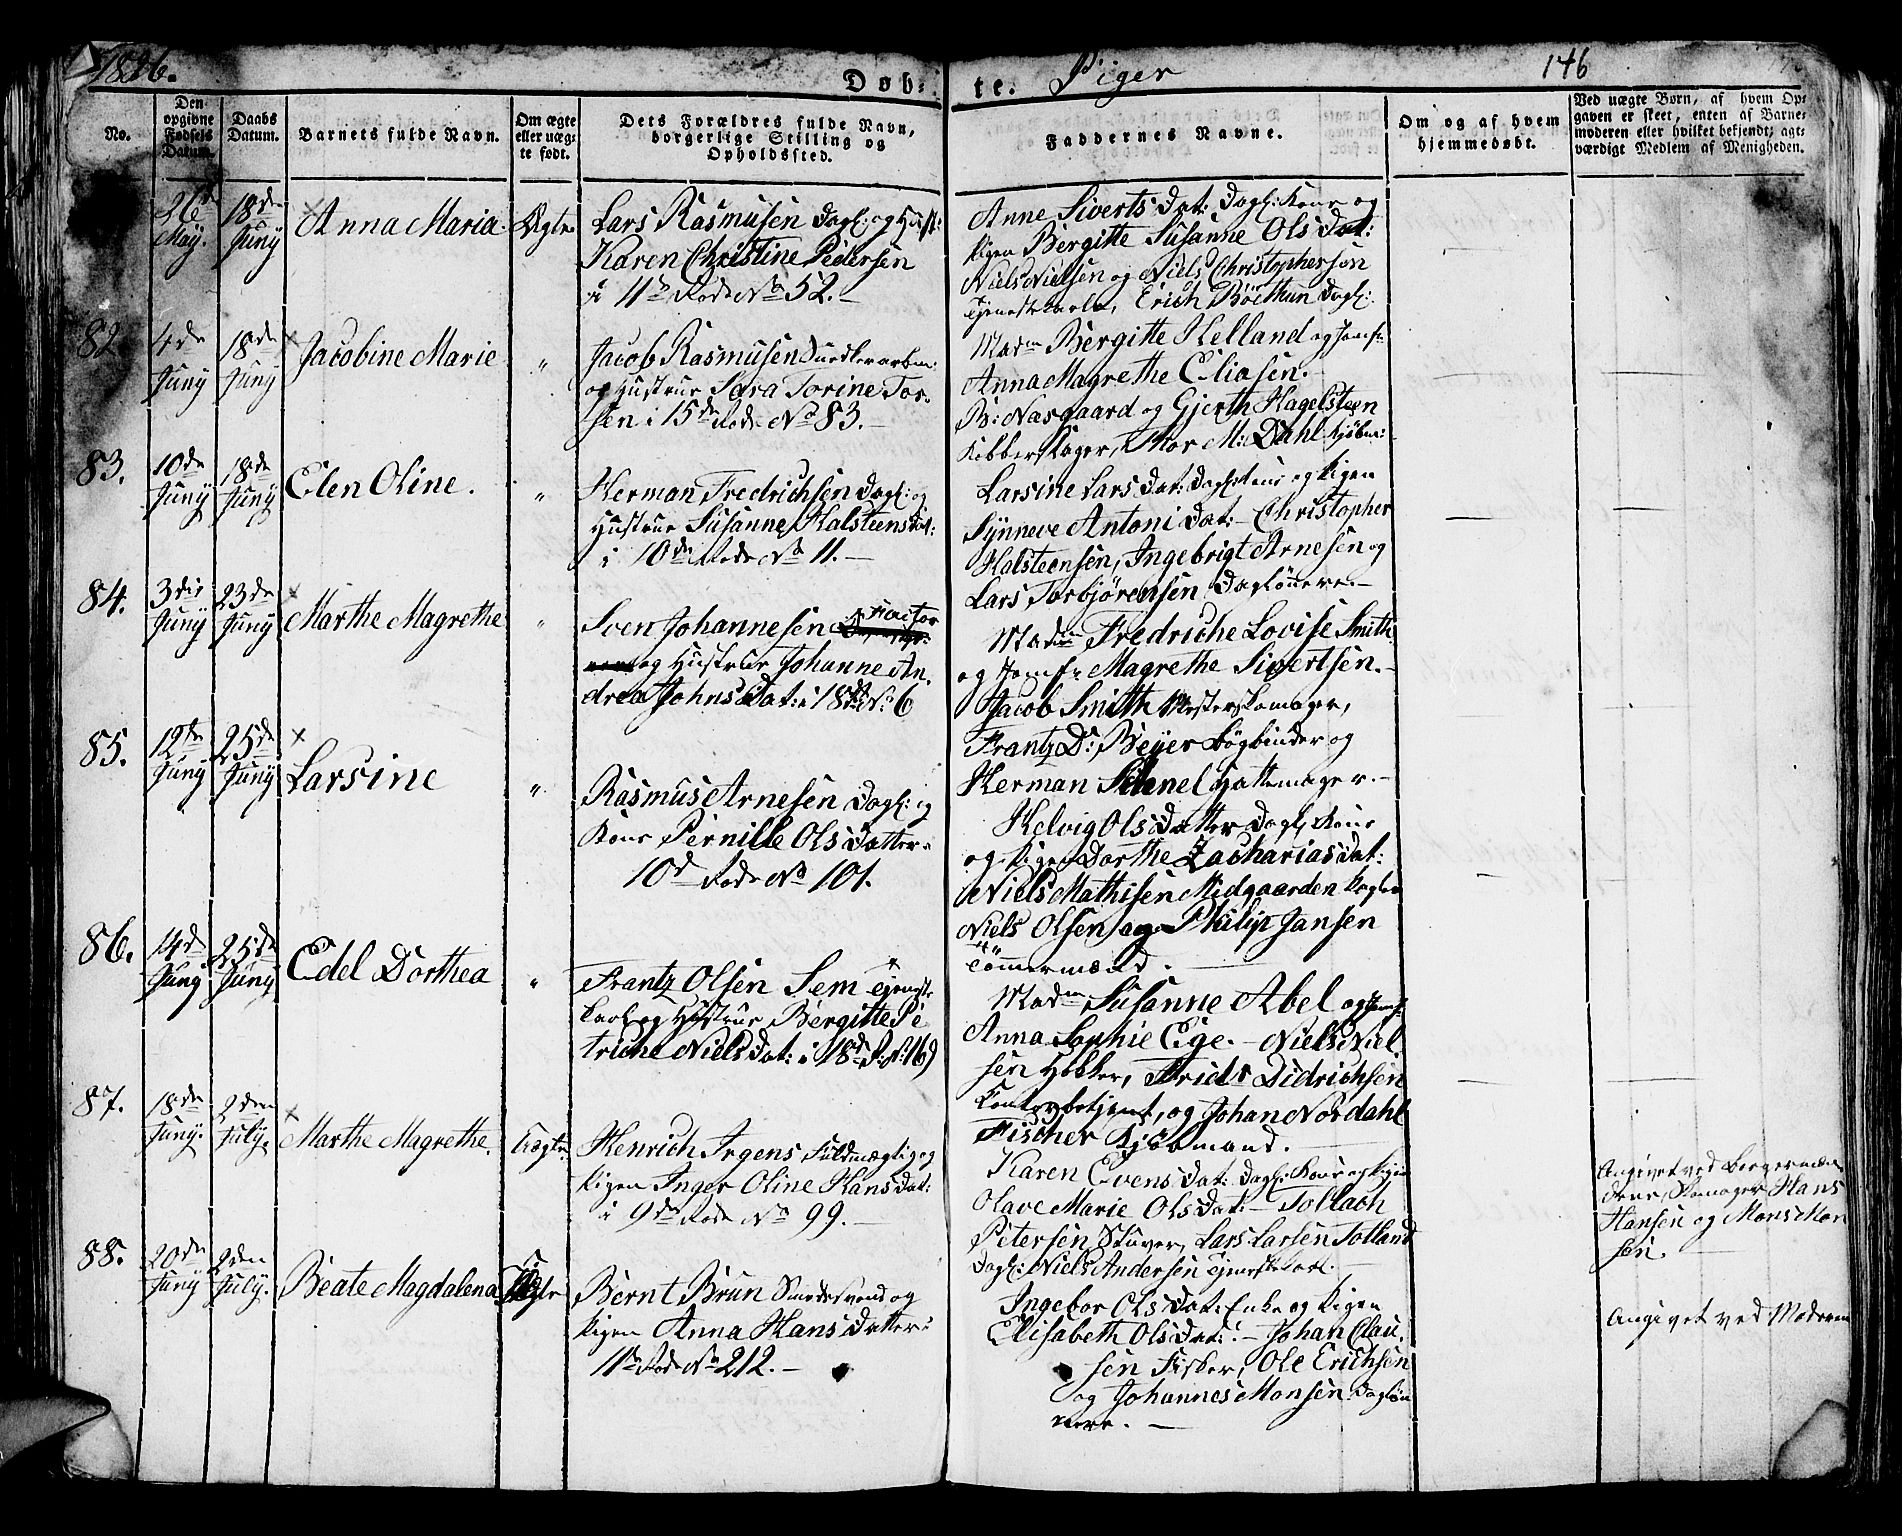 1826.
Døb-
te. Piger
146
No.
Den
opgivne
Fødsels
Datum.
Daabs
Datum.
Barnets fulde Navn.
Om ægte
eller uæg-
te født.
Dets Forældres fulde Navn,
borgerlige Stilling og
Opholdssted.
Faddernes Navne.
Om og af hvem
hjemmedøbt.
Ved uægte Børn, af hvem Op-
gaven er skeet, enten af Barne-
moderen eller hvilket bekjendt, agt-
værdigt Medlem af Menigheden.
26de
May.
18de
Juny
Anna Maria
Ægte
Lars Rasmusen Dagl: og Hust:
Karen Christine Pedersen
i 11te Rode No 52.
Anne Siverts Dat: Dagl: Kone og
Pigen Bergitte Susanne Ols Dat:
Niels Nielsen og Niels Christophersen
Tjenestekarle, Erich Böethun Dagl:
82
4de
Juny
18de
Juny
Jacobine Marie
"
Jacob Rasmusen Snedkerarbm:
og Hustrue Sara Torine Tor-
sen i 15de Rode No 83.
Madm Bergitte Helland og Jomfr
Anna Magrethe Eliasen.
B: Nasgaard og Gjerth Hagelsteen
Kobberslager, Thor M: Dahl Kjøbm:
83.
10de
Juny
18de
Juny
Elen Oline.
"
Herman Fredrichsen Dagl: og
Hustrue Susanne Halsteens Dat:
i 10de Rode No 11.
Larsine Lars Dat: Dagl: Kone og Pigen
Synneve Antoni Dat: Christopher
Halsteensen, Ingebrigt Arnesen og
Lars Torbjörensen Daglönere.
84.
3die
Juny
23de
Juny
Marthe Magrethe
"
Sven Johannesen Factor
og Hustrue Johanne An-
drea Johns Dat: i 18de R. No: 6
Madm Fredriche Lovise Smith
og Jomfr Magrethe Sivertsen.
Jacob Smith Mesterskomager,
Frantz D: Beyer Bogbinder og
Herman Schnel Hattemager.
85.
12te
Juny
25de
Juny
Larsine
"
Rasmus Arnesen Dagl: og
Kone Pernille Ols Datter i
10de Rode No 101.
Helvig Ols Datter Dagl: Kone
og Pigen Dorthe Zacharias Dat:
Niels Mathisen Midgaarden Dagl:
Niels Olsen og Philip Jansen
Tömmermænd.
86.
14de
Juny
25de
Juny
Edel Dorthea
"
Frantz Olsen Sem Tjeneste-
karl og Hustrue Bergitte Pe
trine Niels Dat: i 18de R: N: 169
Madm Susanne Abel og Jomf:
Anna Sophie Eige. Niels Niel
sen Høker, Frids Didrichsen
og Johan Nordahl
Fischer Kjöbmand.
87.
18de
Juny.
2den
July.
Marthe Magrethe.
Uægte
Henrich Irgens Fuldmægtig og
Pigen Inger Oline Hans Dat:
i 9de Rode No 99.
Karen Evens Dat: Dagl: Kone og Pigen
Olave Marie Ols Dat: Tollach
Petersen Stuver, Lars Larsen Tolland
Dagl: Niels Andersen Tjenestekarl.
Angivet ved Borgermæn
dene, Skomager Hans
Hansen og Mons Mon
sen.
88.
20de
Juny
2den
July.
Beate Magdalena
Uægte
Bernt Brun Smedesvend og
Pigen Anna Hans Datter i
11te Rode No 212.
Ingebor Ols Dat: Enke og Pigen
Elisabeth Ols Dat: Johan Clau-
sen Fisker, Ole Erichsen
og Johannes Monsen Daglön
nere.
Angivet ved Moderen